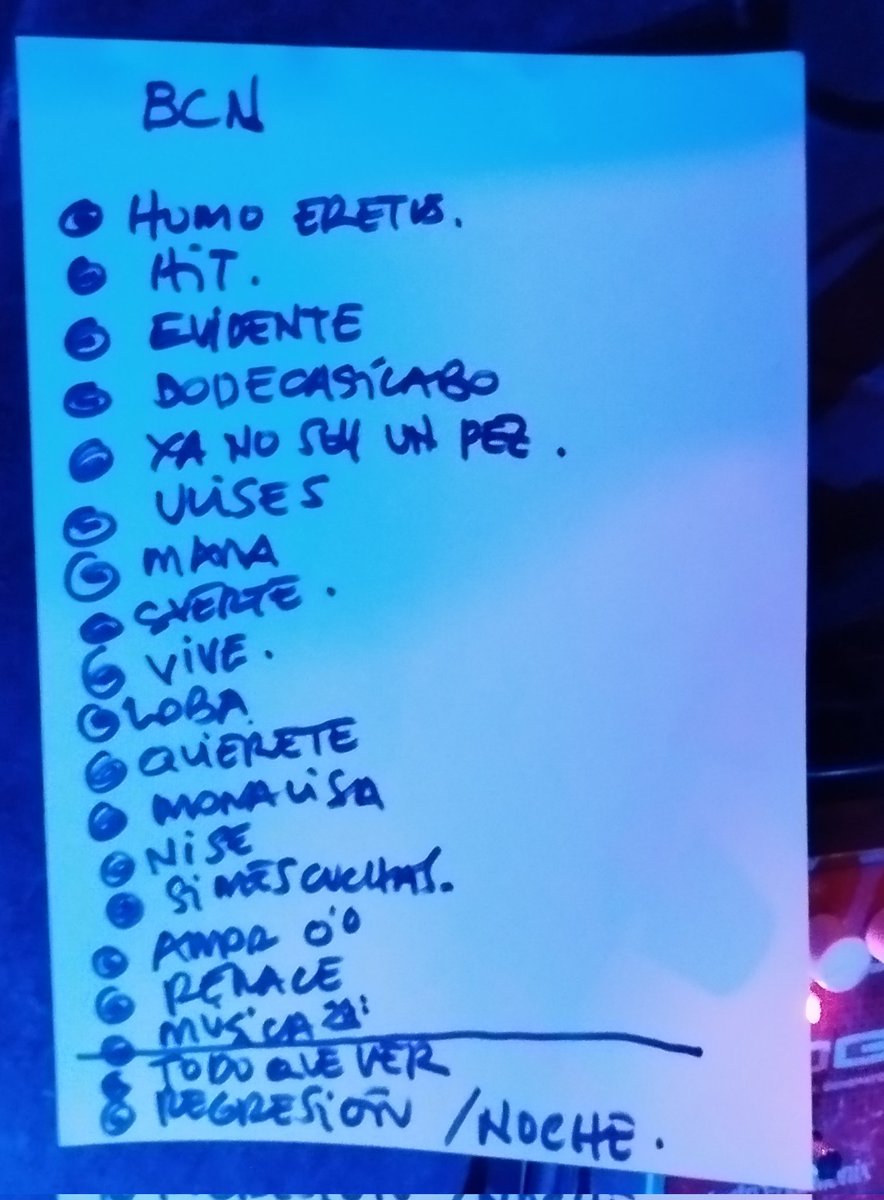 BCN
HUMO ERETUS.
HiT.
EViDENTE
DODECASíLABO
YA NO SOY UN PEZ.
ULiSES
MANA
SUERTE.
ViVE.
LOBA
QUiERETE
MONALiSA
Ni SE
Si MES CUCHAS.
AMOR 0'0
RENACE
MUSiCA
TODO QUE VER
REGRESiÓN /NOCHE.